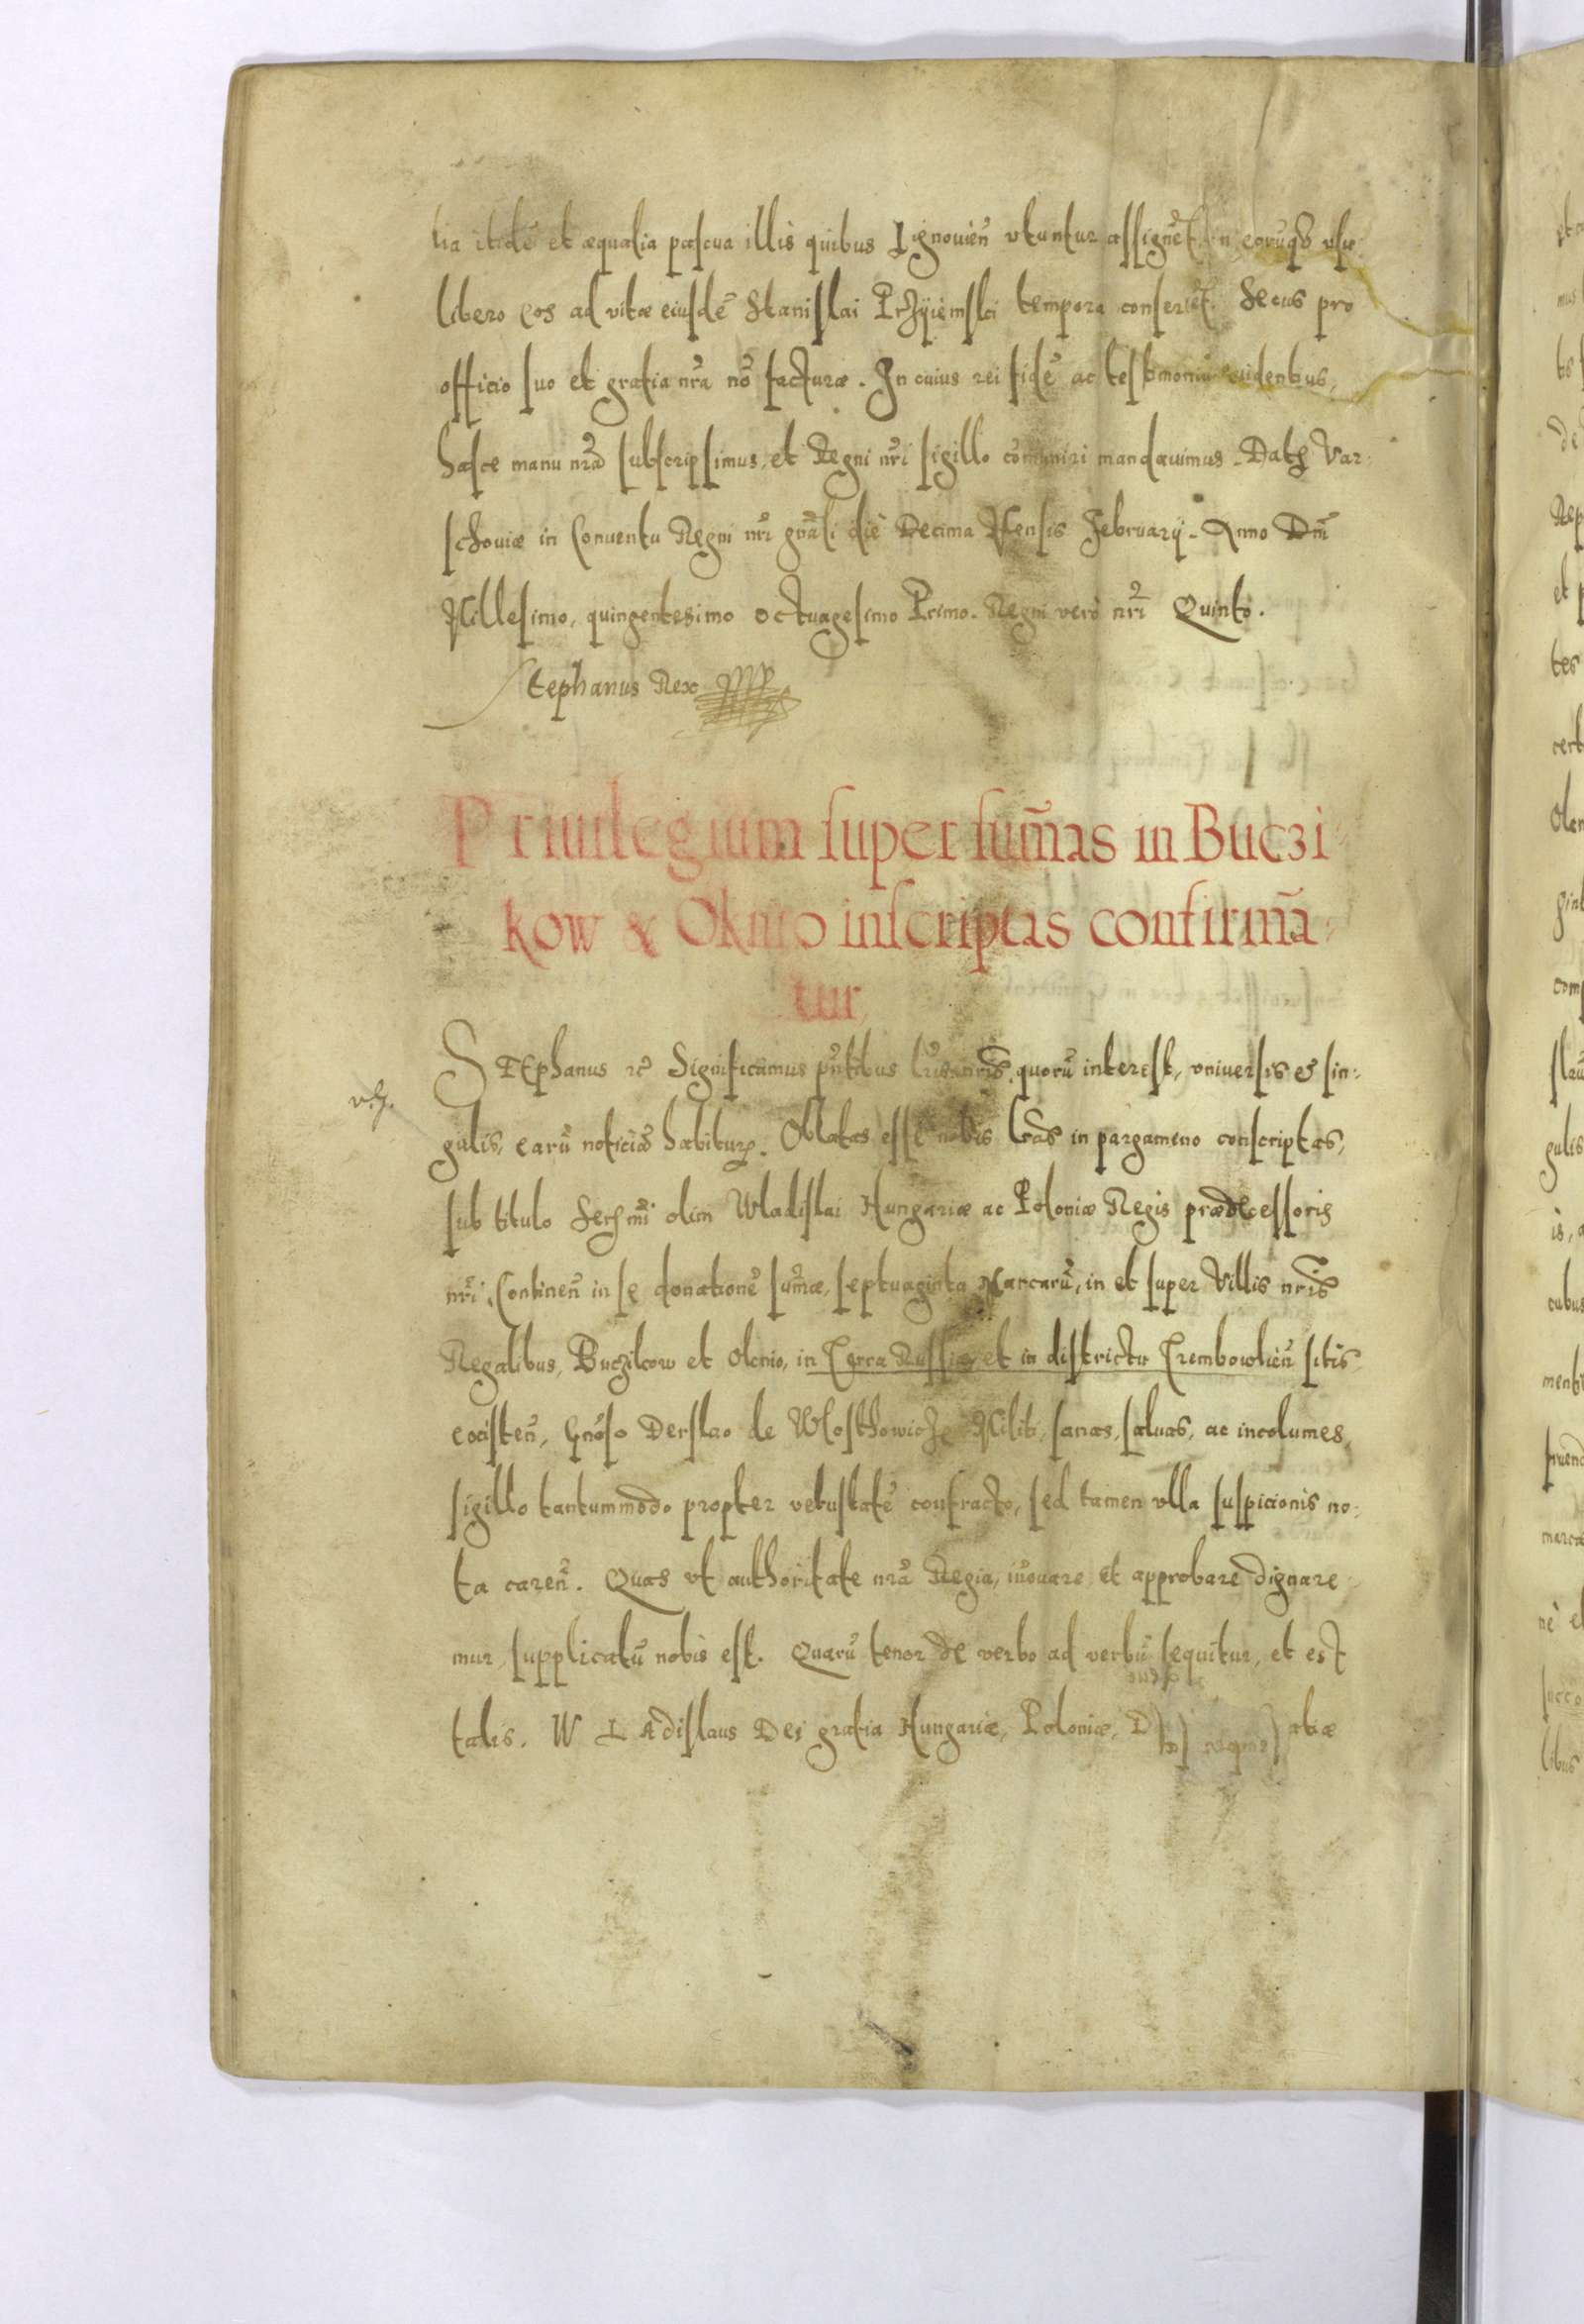 lia itidē et æqualia pascua illis quibus Lignouien̄ vtuntur assignēt in eorūqȝ vsu
libero eos ad vitæ eiusdē Stanislai Przyiemski tempora conseruēt. Secus pro
officio suo et gratia nr̄a nō facturæ. In cuius rei fidē ac testimoniū euidentius,
hasce manu nr̄a subscripsimus, et Regni nr̄i sigillo cōmuniri mandauimus. Datȝ Var:
schouiæ in Conuentu Regni nr̄i gn̄ali die Decima Mensis February. Anno Dn̄i
Millesimo, quingentesimo octuagesimo Primo. Regni verò nr̄i Quinto.
Stephanus Rex
Priuilegium super sum̄as in Buczi
kow & Okno inscriptas confirma͂
tur
STEphanus ꝛc̄ Significamus pn̄tibus lr̄is nr̄is, quorū interest, vniuersis et sin:
gulis, earū noticiā habituꝝ. Oblatas esse nobis lr̄as in pargameno conscriptas,
sub titulo Serꝫmi olim Wladislai Hungariæ ac Poloniæ Regis prædecessoris
nr̄i, Continen̄ in se donationē sum̄æ, septuaginta Marcarū, in et super Villis nr̄is
Regalibus, Buczikow et Okno, in Terra Russiæ, et in districtu Trembowlien̄ sitis
existen̄, Gn̄oso Derslao de Wlosthowicze Militi, sanas, saluas, ac incolumes,
sigillo tantummodo propter vetustatē confracto, sed tamen vlla suspicionis no:
ta caren̄. Quas vt authoritate nr̄a Regia, iñouare et approbare dignare
mur, supplicatū nobis est. Quarū tenor de verbo ad verbū sequitur, et est
talis. WLAdislaus Dei gratia Hungariæ, Poloniæ, D atiæ